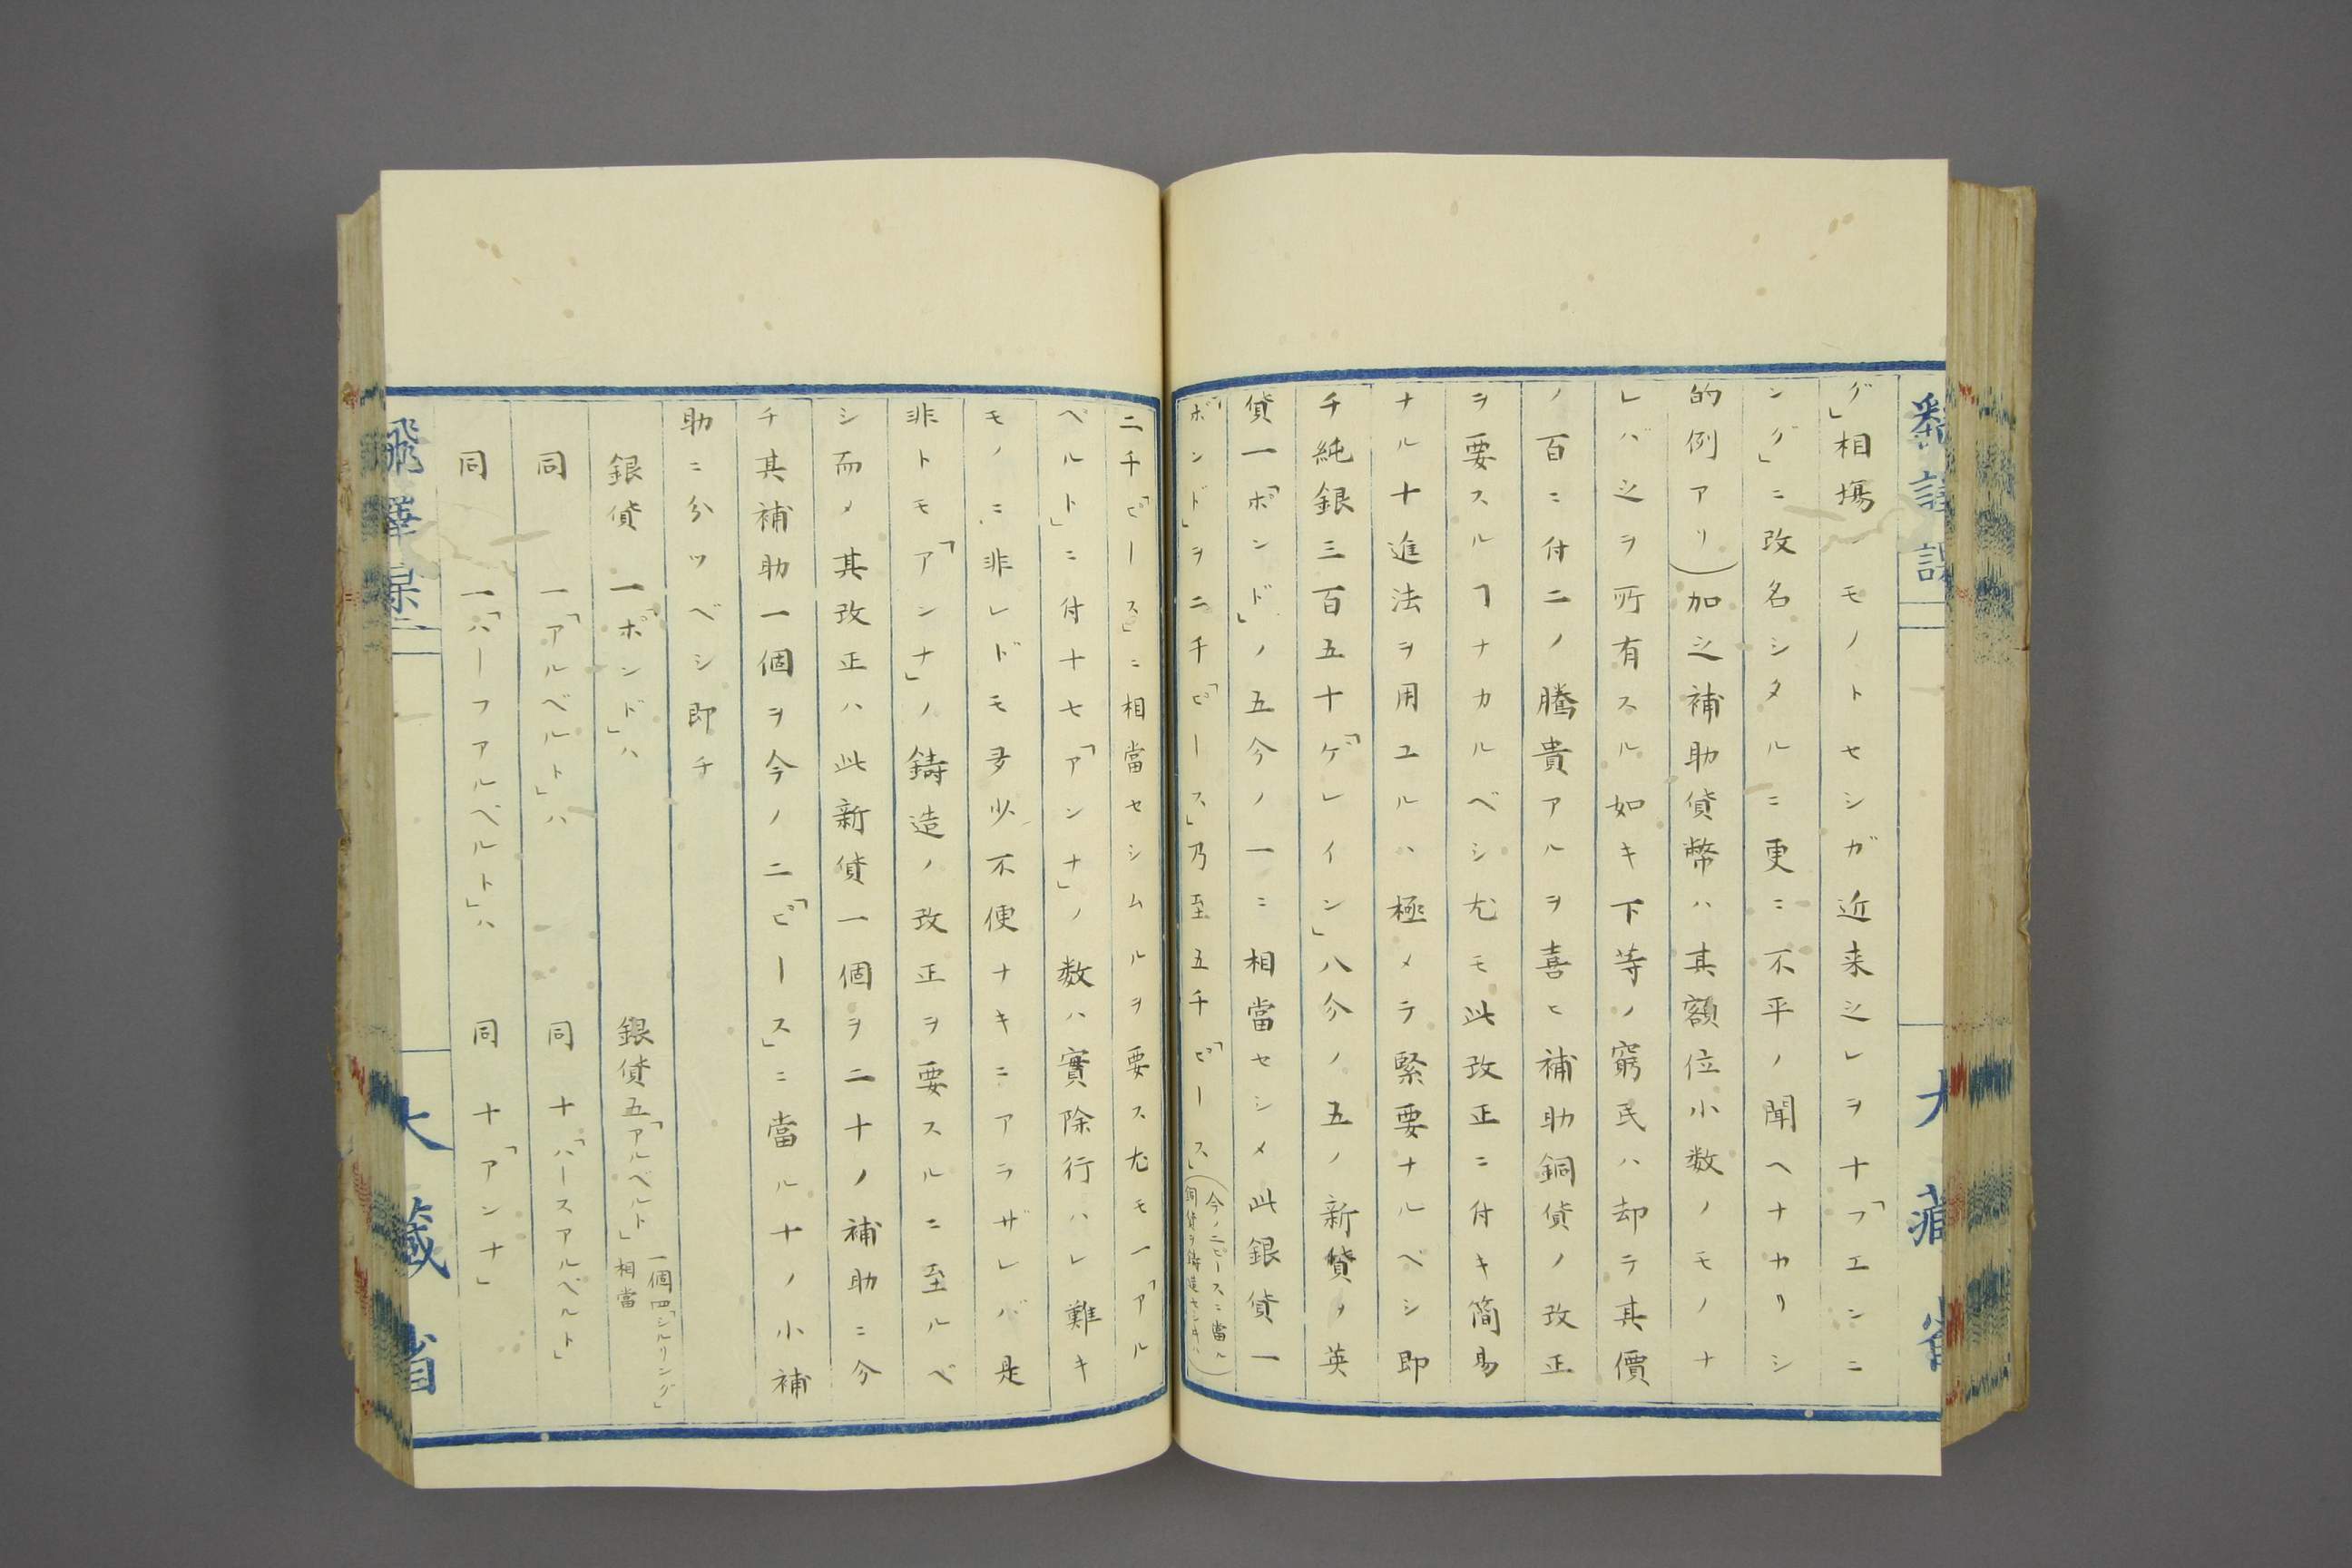 グ」相塲ノモノトセシガ近来之レヲ十「フエンニ
ング」ニ改名シタルニ更ニ不平ノ聞ヘナカリシ
的例アリ)加之補助貨幣ハ其額位小数ノモノナ
レバ之ヲ所有スル如キ下等ノ窮民ハ却テ其價
ノ百ニ付二ノ騰貴アルヲ喜ヒ補助銅貨ノ改正
ヲ要スルヿナカルベシ尤モ此改正ニ付キ簡易
ナル十進法ヲ用ユルハ極メテ緊要ナルベシ即
チ純銀三百五十「ゲレイン」八分ノ五ノ新貨ヲ英
貨一「ポンド」ノ五分ノ一ニ相當セシメ此銀貨一
「ポンド」ヲ二千「ピース」乃至五千「ピース」(今ノ二ピースニ當ル
銅貨ヲ鋳造セシキハ)
二千「ピース」ニ相當セシムルヲ要ス尤モ一「アル
ベルト」ニ付十七「アンナ」ノ数ハ實際行ハレ難キ
モノニ非レドモ多少不便ナキニアラザレバ是
非トモ「アンナ」ノ鋳造ノ改正ヲ要スルニ至ルベ
シ而メ其改正ハ此新貨一個ヲ二十ノ補助ニ分
チ其補助一個ヲ今ノ二「ピース」ニ當ル十ノ小補
助ニ分ツベシ即チ
銀貨 一「ポンド」ハ 銀貨五「アルベルト」一個四「シルリング」
相當
同 一「アルベルト」ハ 同 十「ハースアルベルト」
同 一「ハーフアルベルト」ハ 同 十「アンナ」
大藏省